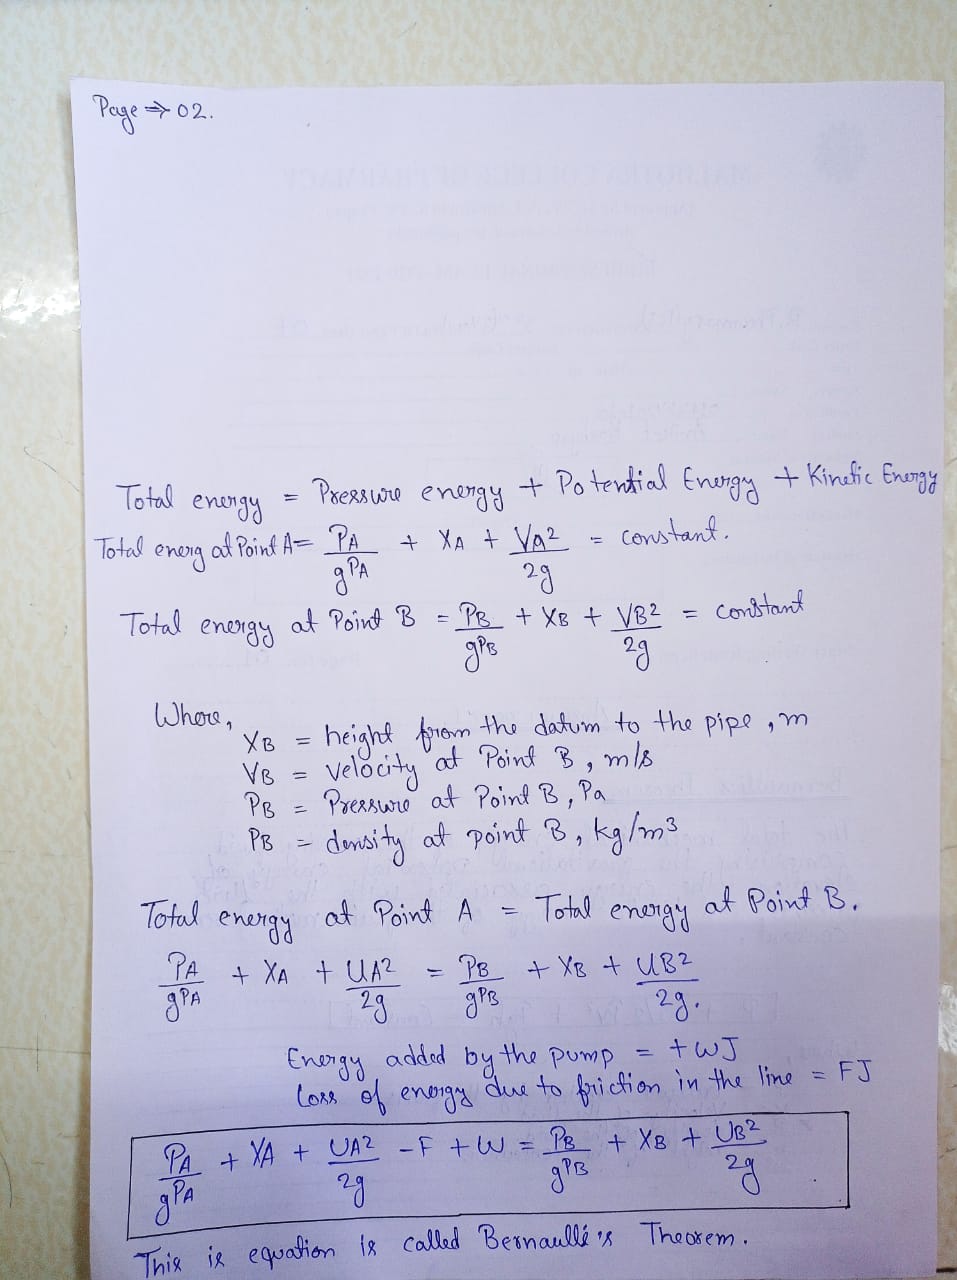 Page ⇒ 02.
Total energy = Pressure energy + Potential Energy + Kinetic Energy
Total energ at Point A = PA/gPA + XA + VA2/2g = constant.
Total energy at Point B = PB/gPB + XB + VB2/2g = constant
Where,
XB = height from the datum to the pipe, m
VB = velocity at Point B, m/s
PB = Pressure at Point B, Pa
PB = density at point B, kg/m3
Total energy at Point A = Total energy at Point B.
PA/gPA + XA + UA2/2g = PB/gPB + XB + UB2/2g.
Energy added by the pump = + WJ
Loss of energy due to friction in the line = FJ
PA/gPA + XA + UA2/2g - F + W = PB/gPB + XB + UB2/2g
This is equation is called Bernaullé's Theorem.